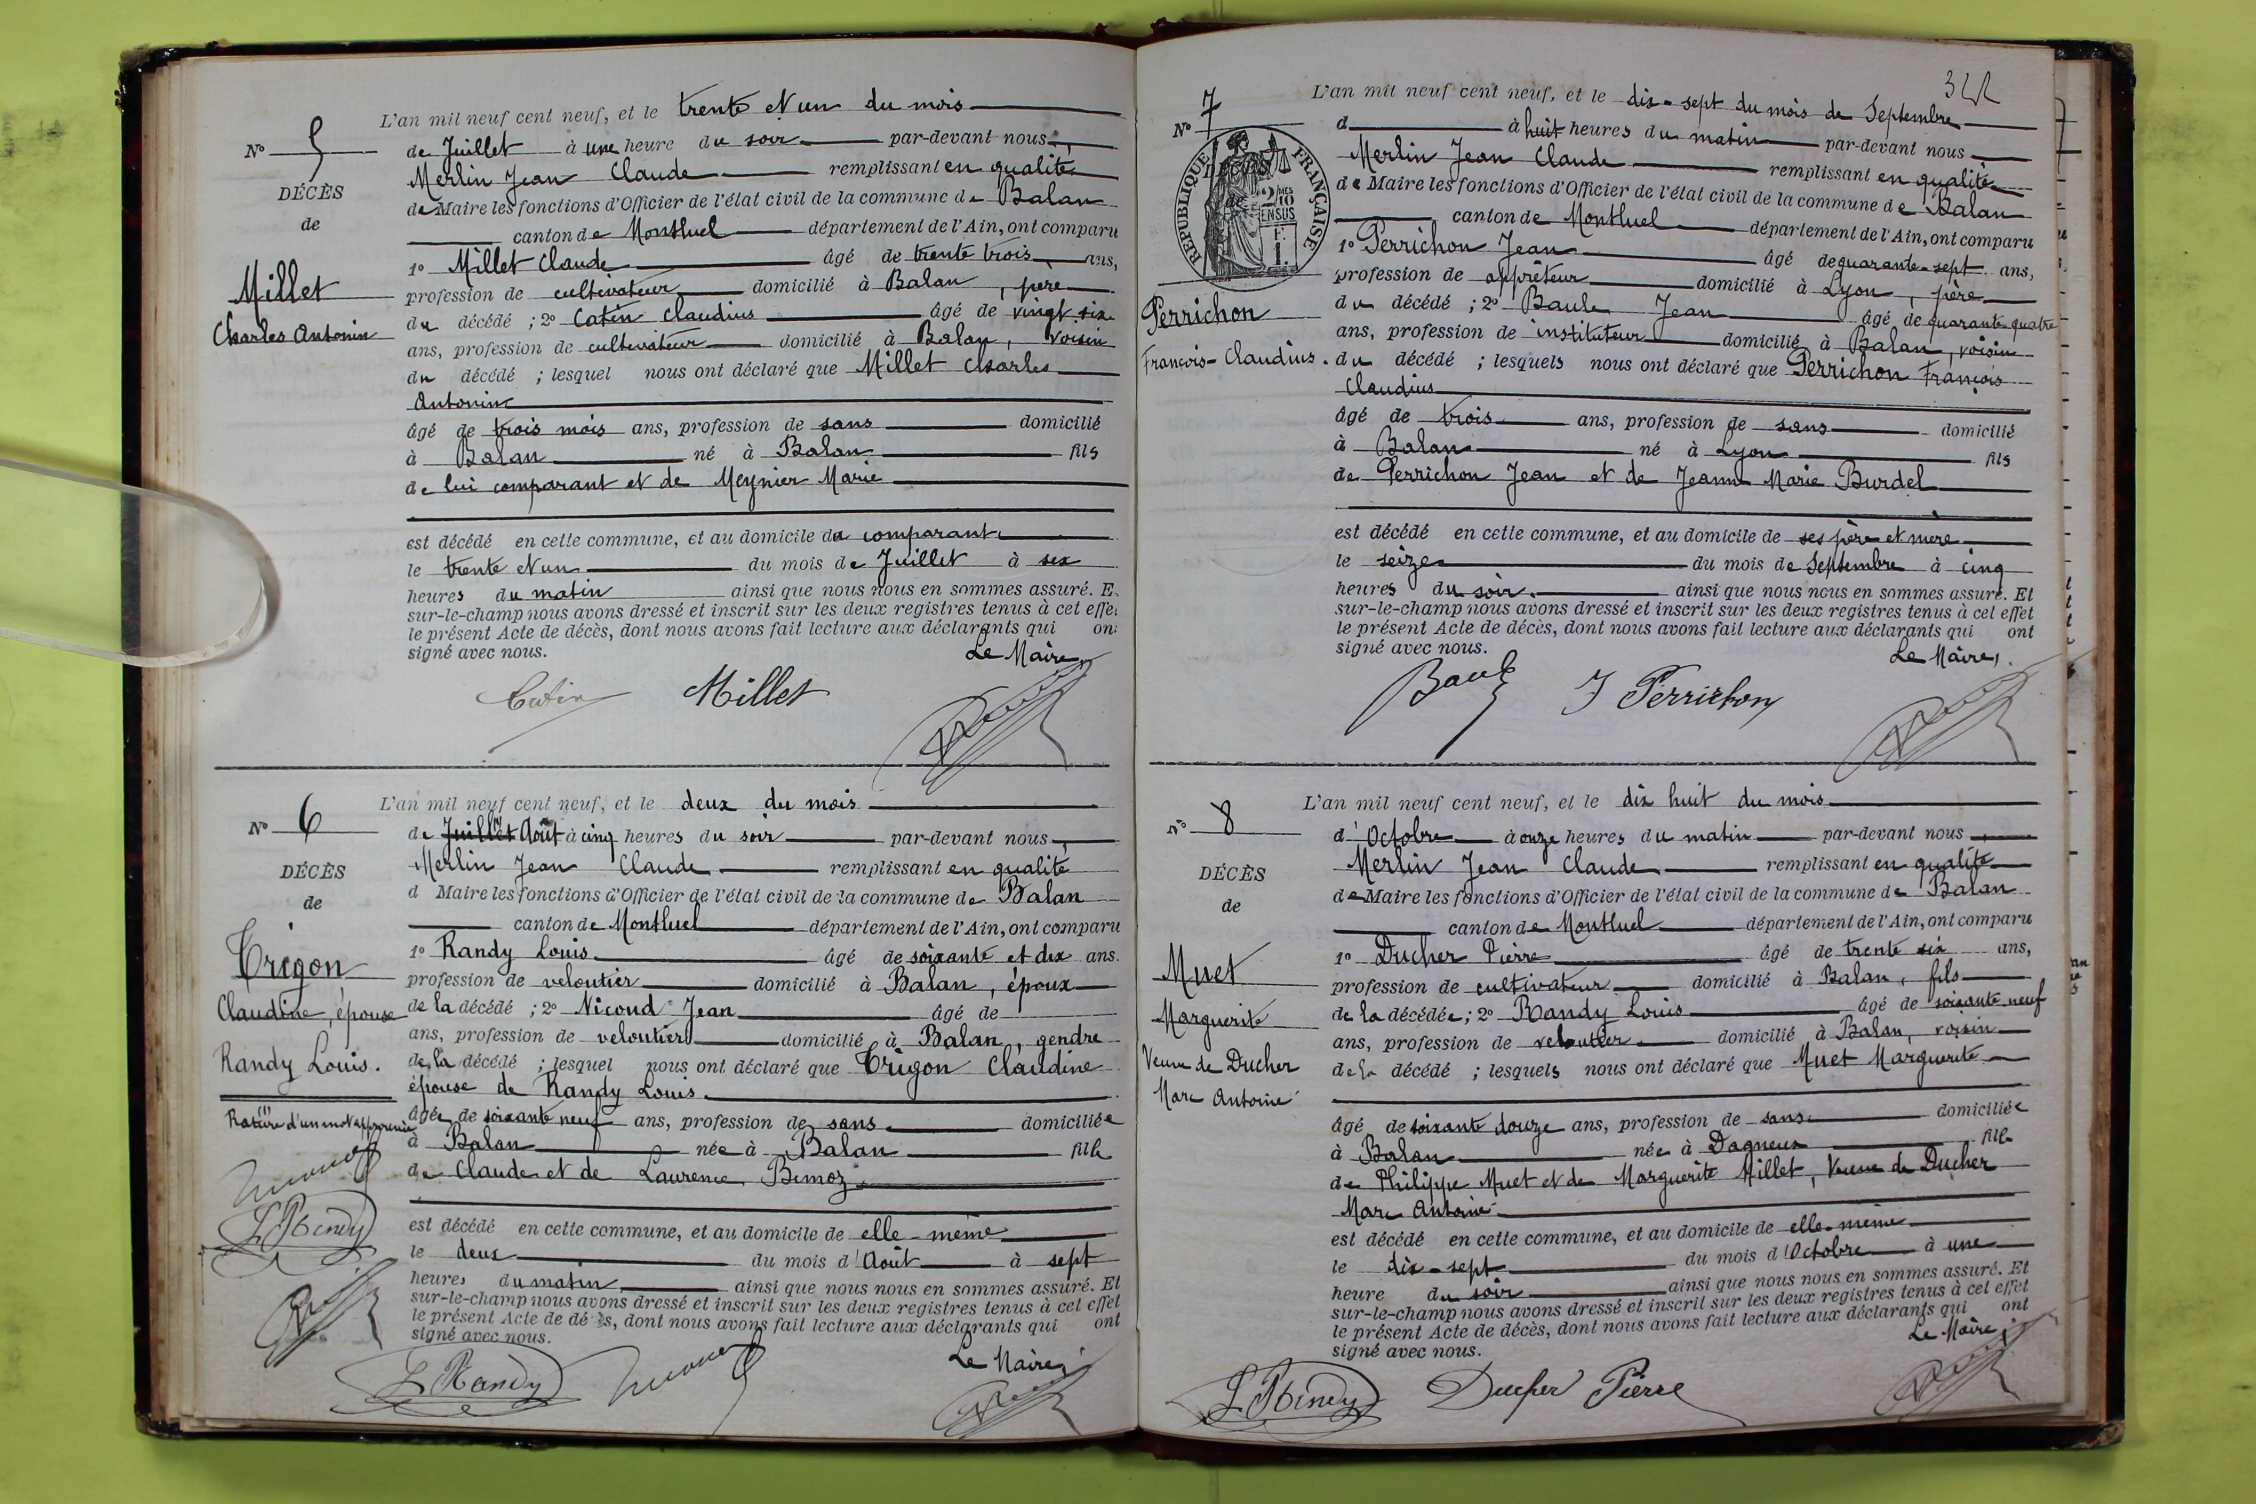 L'an mil neuf cent neuf, et le trente et un du mois
N° 5
de Juillet à une heure du soir par-devant nous,
Merlin Jean Claude remplissant en qualité
DÉCÈS
de Maire les fonctions d'Officier de l'état civil de la commune de Balan
de
canton de Montluel département de l'Ain, ont comparu
1° Millet Claude âgé de trente trois ans,
Millet
profession de cultivateur domicilié à Balan, père
Charles Antonin
du décédé ; 2° Catin Claudius âgé de vingt six
ans, profession de cultivateur domicilié à Balan, voisin
du décédé ; lesquel nous ont déclaré que Millet Charles
Antonin
âgé de trois mois ans, profession de sans domicilié
à Balan né à Balan fils
de lui comparant et de Meynier Marie
est décédé en cette commune, et au domicile du comparant
le trente et un du mois de Juillet à six
heures du matin ainsi que nous nous en sommes assuré. E
sur-le-champ nous avons dressé et inscrit sur les deux registres tenus à cet effe
le présent Acte de décès, dont nous avons fait lecture aux déclarants qui on
signé avec nous.
Le Maire,
Catin Millet
L'an mil neuf cent neuf, et le deux du mois
N° 6
de Juillet Août à cinq heures du soir par-devant nous,
Merlin Jean Claude remplissant en qualité
DÉCÈS
d Maire les fonctions d'Officier de l'état civil de la commune de Balan
de
canton de Montluel département de l'Ain, ont comparu
1° Randy Louis âgé de soixante et dix ans.
Trigon
profession de veloutier domicilié à Balan, époux
Claudine, épouse
de la décédé ; 2° Nicoud Jean âgé de
ans, profession de veloutier domicilié à Balan, gendre
Randy Louis.
de la décédé ; lesquel nous ont déclaré que Trigon Claudine
épouse de Randy Louis
Rature d'un mot approuvée
âgée de soixante neuf ans, profession de sans domiciliée
à Balan née à Balan fille
de Claude et de Laurence Bimoz
L Randy
est décédé en cette commune, et au domicile de elle-même
le deux du mois d'Août à sept
heures du matin ainsi que nous nous en sommes assuré. Et
sur-le-champ nous avons dressé et inscrit sur les deux registres tenus à cet effet
le présent Acte de décès, dont nous avons fait lecture aux déclarants qui ont
signé avec nous.
Le Maire,
L Randy
342
L'an mil neuf cent neuf, et le dix-sept du mois de Septembre
N° 7
d à huit heures du matin par-devant nous
Merlin Jean Claude remplissant en qualité
RÉPUBLIQUE FRANÇAISE
DÉCÈS
2/10 MES EN SUS
de Maire les fonctions d'Officier de l'état civil de la commune de Balan
canton de Montluel département de l'Ain, ont comparu
1° Perrichon Jean âgé de quarante-sept ans,
profession de apprêteur domicilié à Lyon, père
Perrichon
du décédé ; 2° Baule Jean âgé de quarante quatre
ans, profession de instituteur domicilié à Balan, voisin
François-Claudius.
du décédé ; lesquels nous ont déclaré que Perrichon François
Claudius
âgé de trois ans, profession de sans domicilié
à Balan né à Lyon fils
de Perrichon Jean et de Jeanne Marie Burdel
est décédé en cette commune, et au domicile de ses père et mère
le seize du mois de Septembre à cinq
heures du soir. ainsi que nous nous en sommes assuré. Et
sur-le-champ nous avons dressé et inscrit sur les deux registres tenus à cet effet
le présent Acte de décès, dont nous avons fait lecture aux déclarants qui ont
signé avec nous.
Le Maire,
Baule J Perrichon
L'an mil neuf cent neuf, et le dix huit du mois
N° 8
d'Octobre à onze heures du matin par-devant nous,
Merlin Jean Claude remplissant en qualité
DÉCÈS
de Maire les fonctions d'Officier de l'état civil de la commune de Balan
de
canton de Montluel département de l'Ain, ont comparu
1° Ducher Pierre âgé de trente six ans,
Muet
profession de cultivateur domicilié à Balan, fils
Marguerite
de la décédée ; 2° Randy Louis âgé de soixante neuf
ans, profession de veloutier domicilié à Balan, voisin
Veuve de Ducher
de la décédé ; lesquels nous ont déclaré que Muet Marguerite
Marc Antoine
âgé de soixante douze ans, profession de sans domiciliée
à Balan née à Dagneux fille
de Philippe Muet et de Marguerite Millet, Veuve de Ducher
Marc Antoine
est décédé en cette commune, et au domicile de elle-même
le dix-sept du mois d'Octobre à une
heure du soir ainsi que nous nous en sommes assuré. Et
sur-le-champ nous avons dressé et inscrit sur les deux registres tenus à cet effet
le présent Acte de décès, dont nous avons fait lecture aux déclarants qui ont
signé avec nous.
Le Maire,
L Randy Ducher Pierre